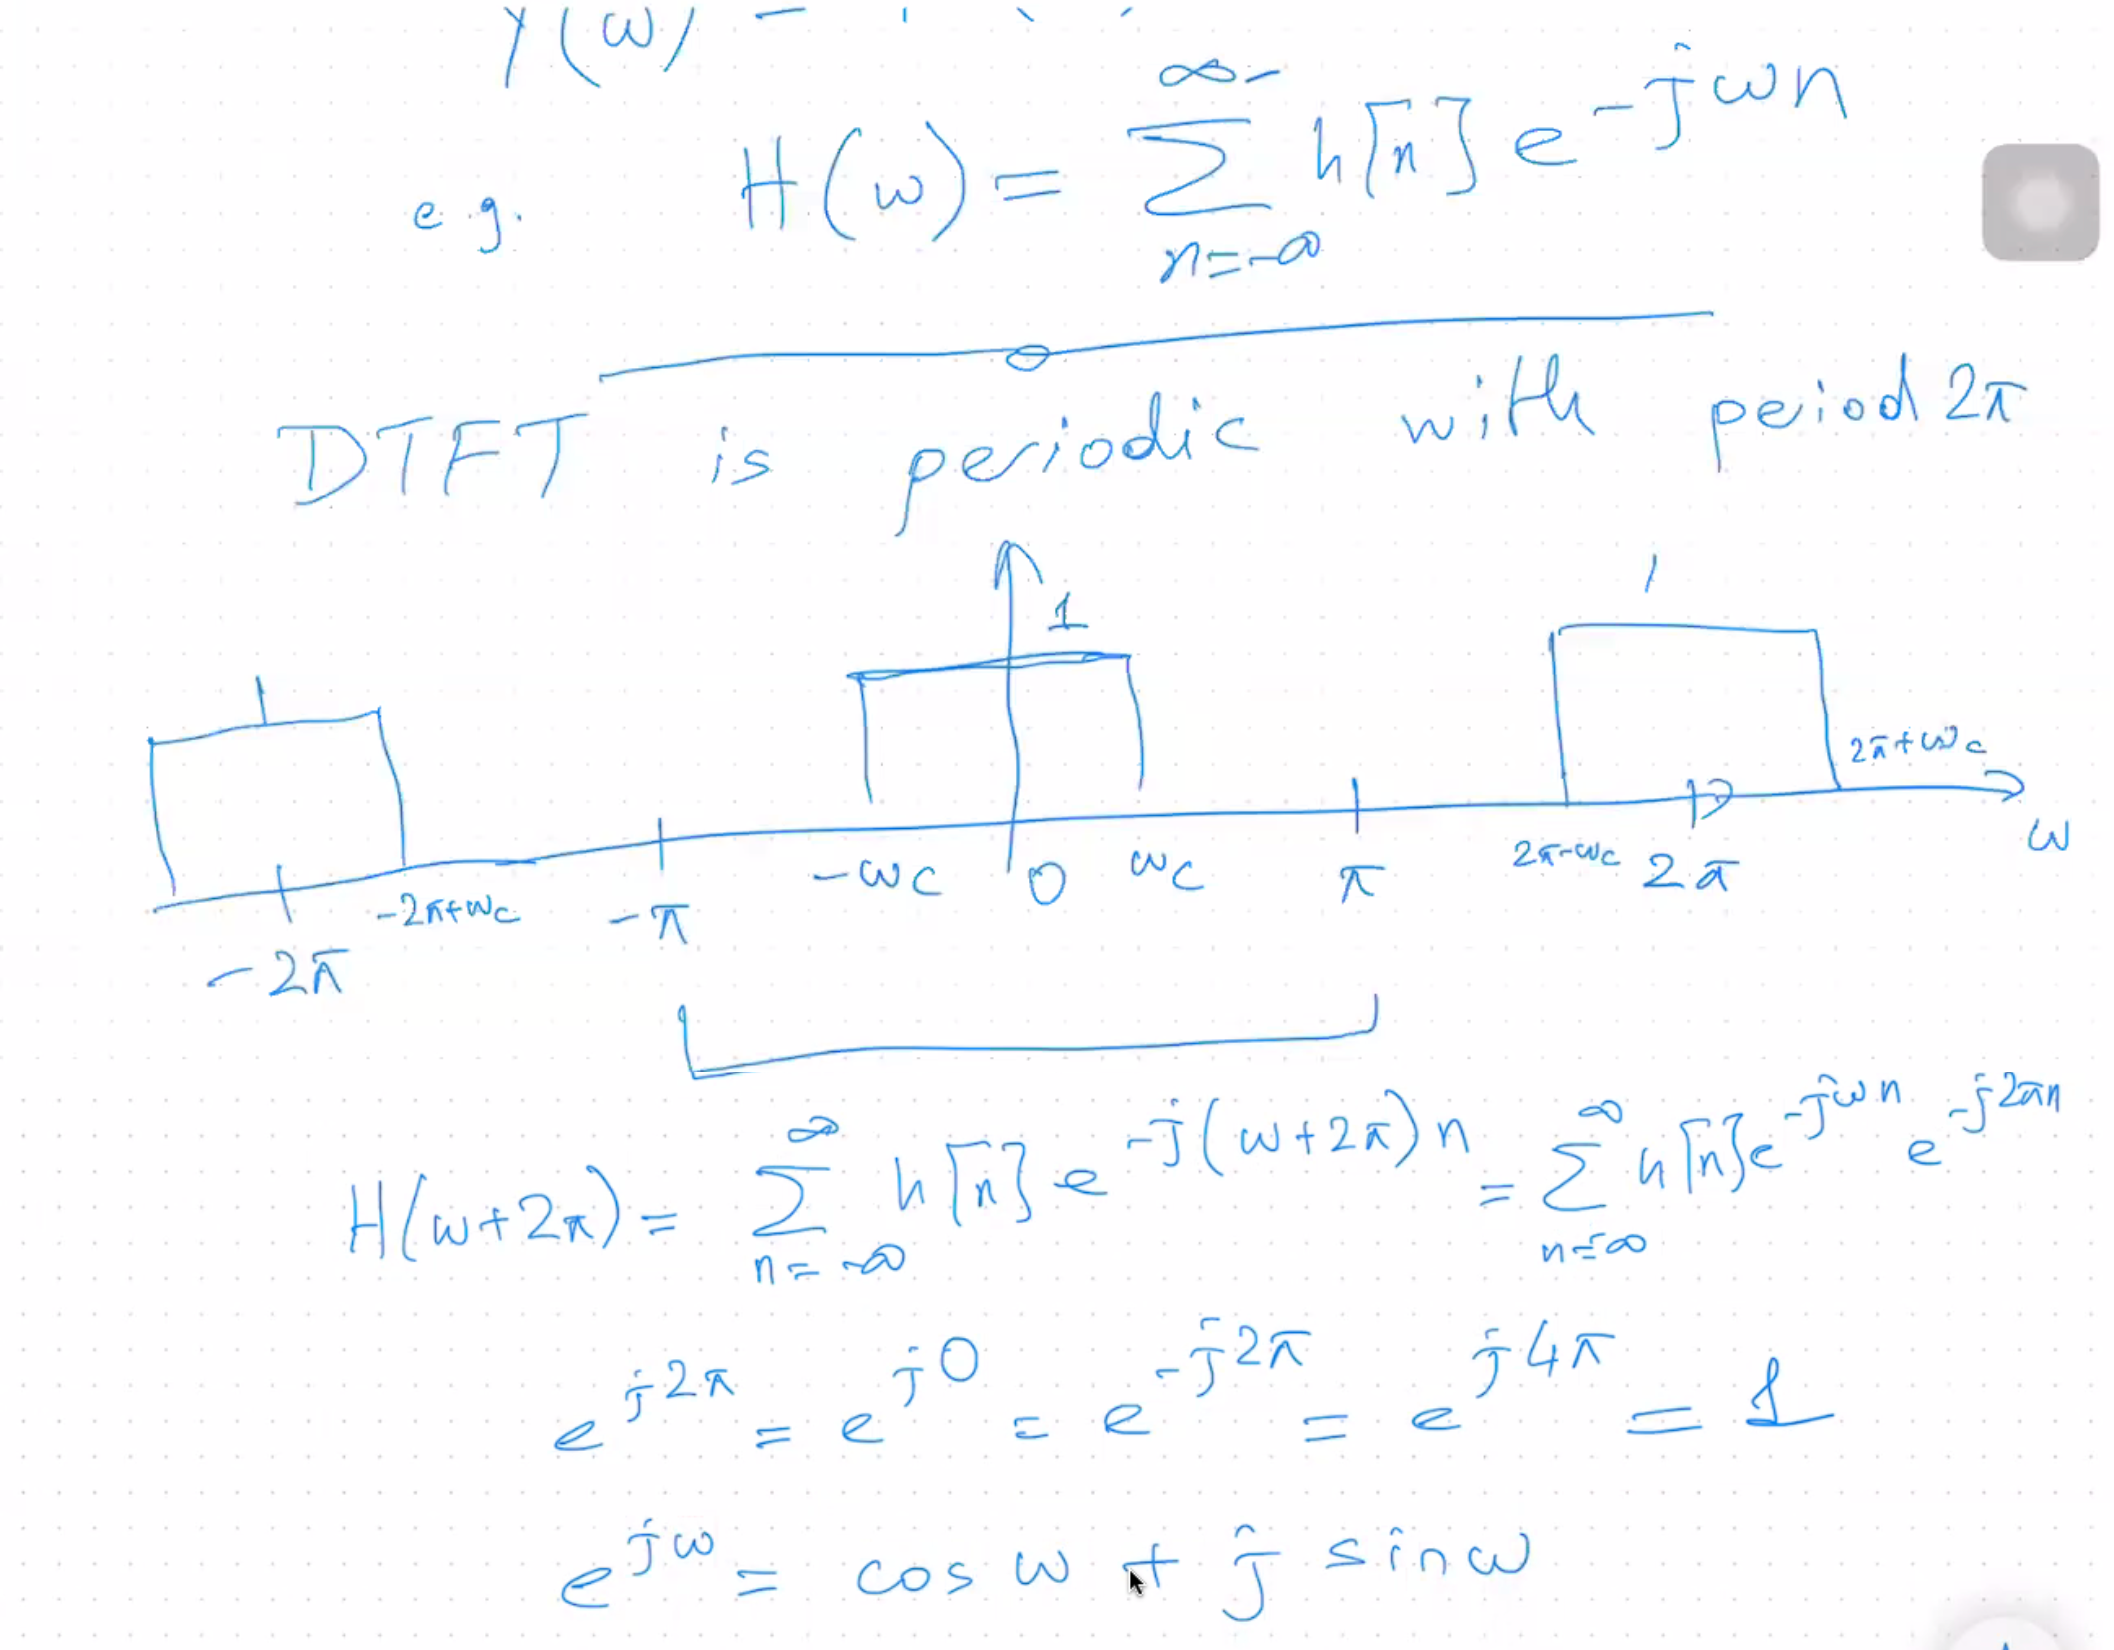 Y(ω) =
∞
e.g. H(ω) = ∑ h[n] e^{-jωn}
n=-∞
DTFT is periodic with period 2π
1
2π+ωc
-2π+ωc -π -ωc 0 ωc π 2π-ωc 2π ω
-2π
∞ ∞
H(ω+2π) = ∑ h[n] e^{-j(ω+2π)n} = ∑ h[n] e^{-jωn} e^{-j2πn}
n=-∞ n=-∞
e^{j2π} = e^{j0} = e^{-j2π} = e^{j4π} = 1
e^{jω} = cos ω + j sin ω